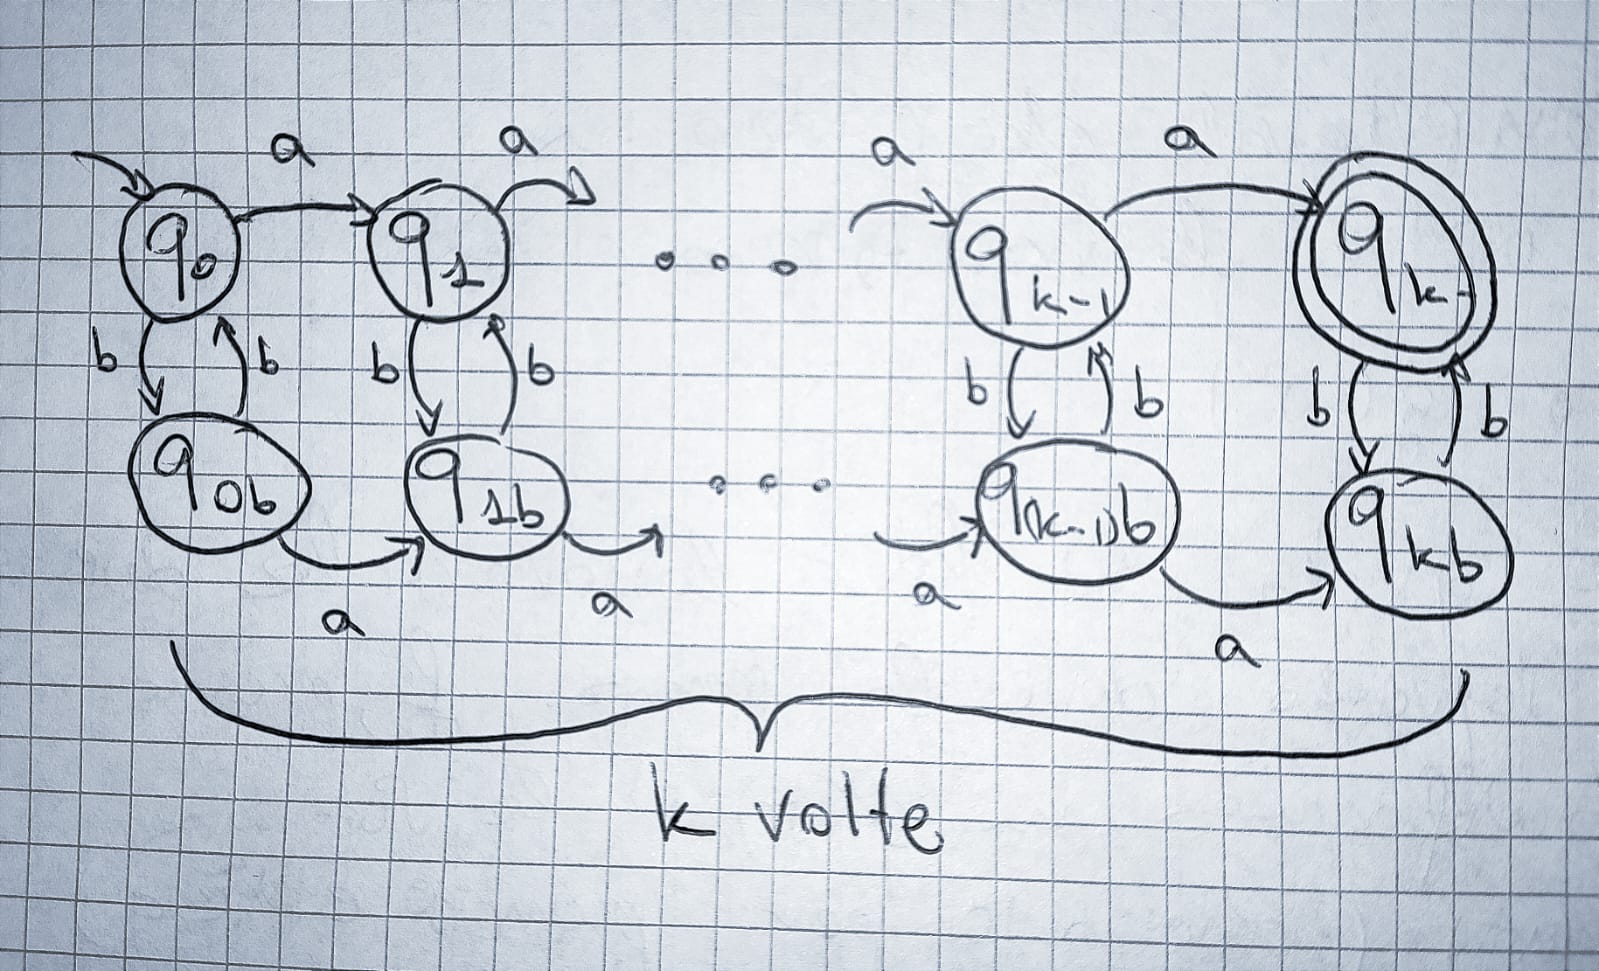 a a a a
q0 q1 q k-1 q k-
b b b b b b b b
q0b q1b q(k-1)b qkb
a a a a
k volte